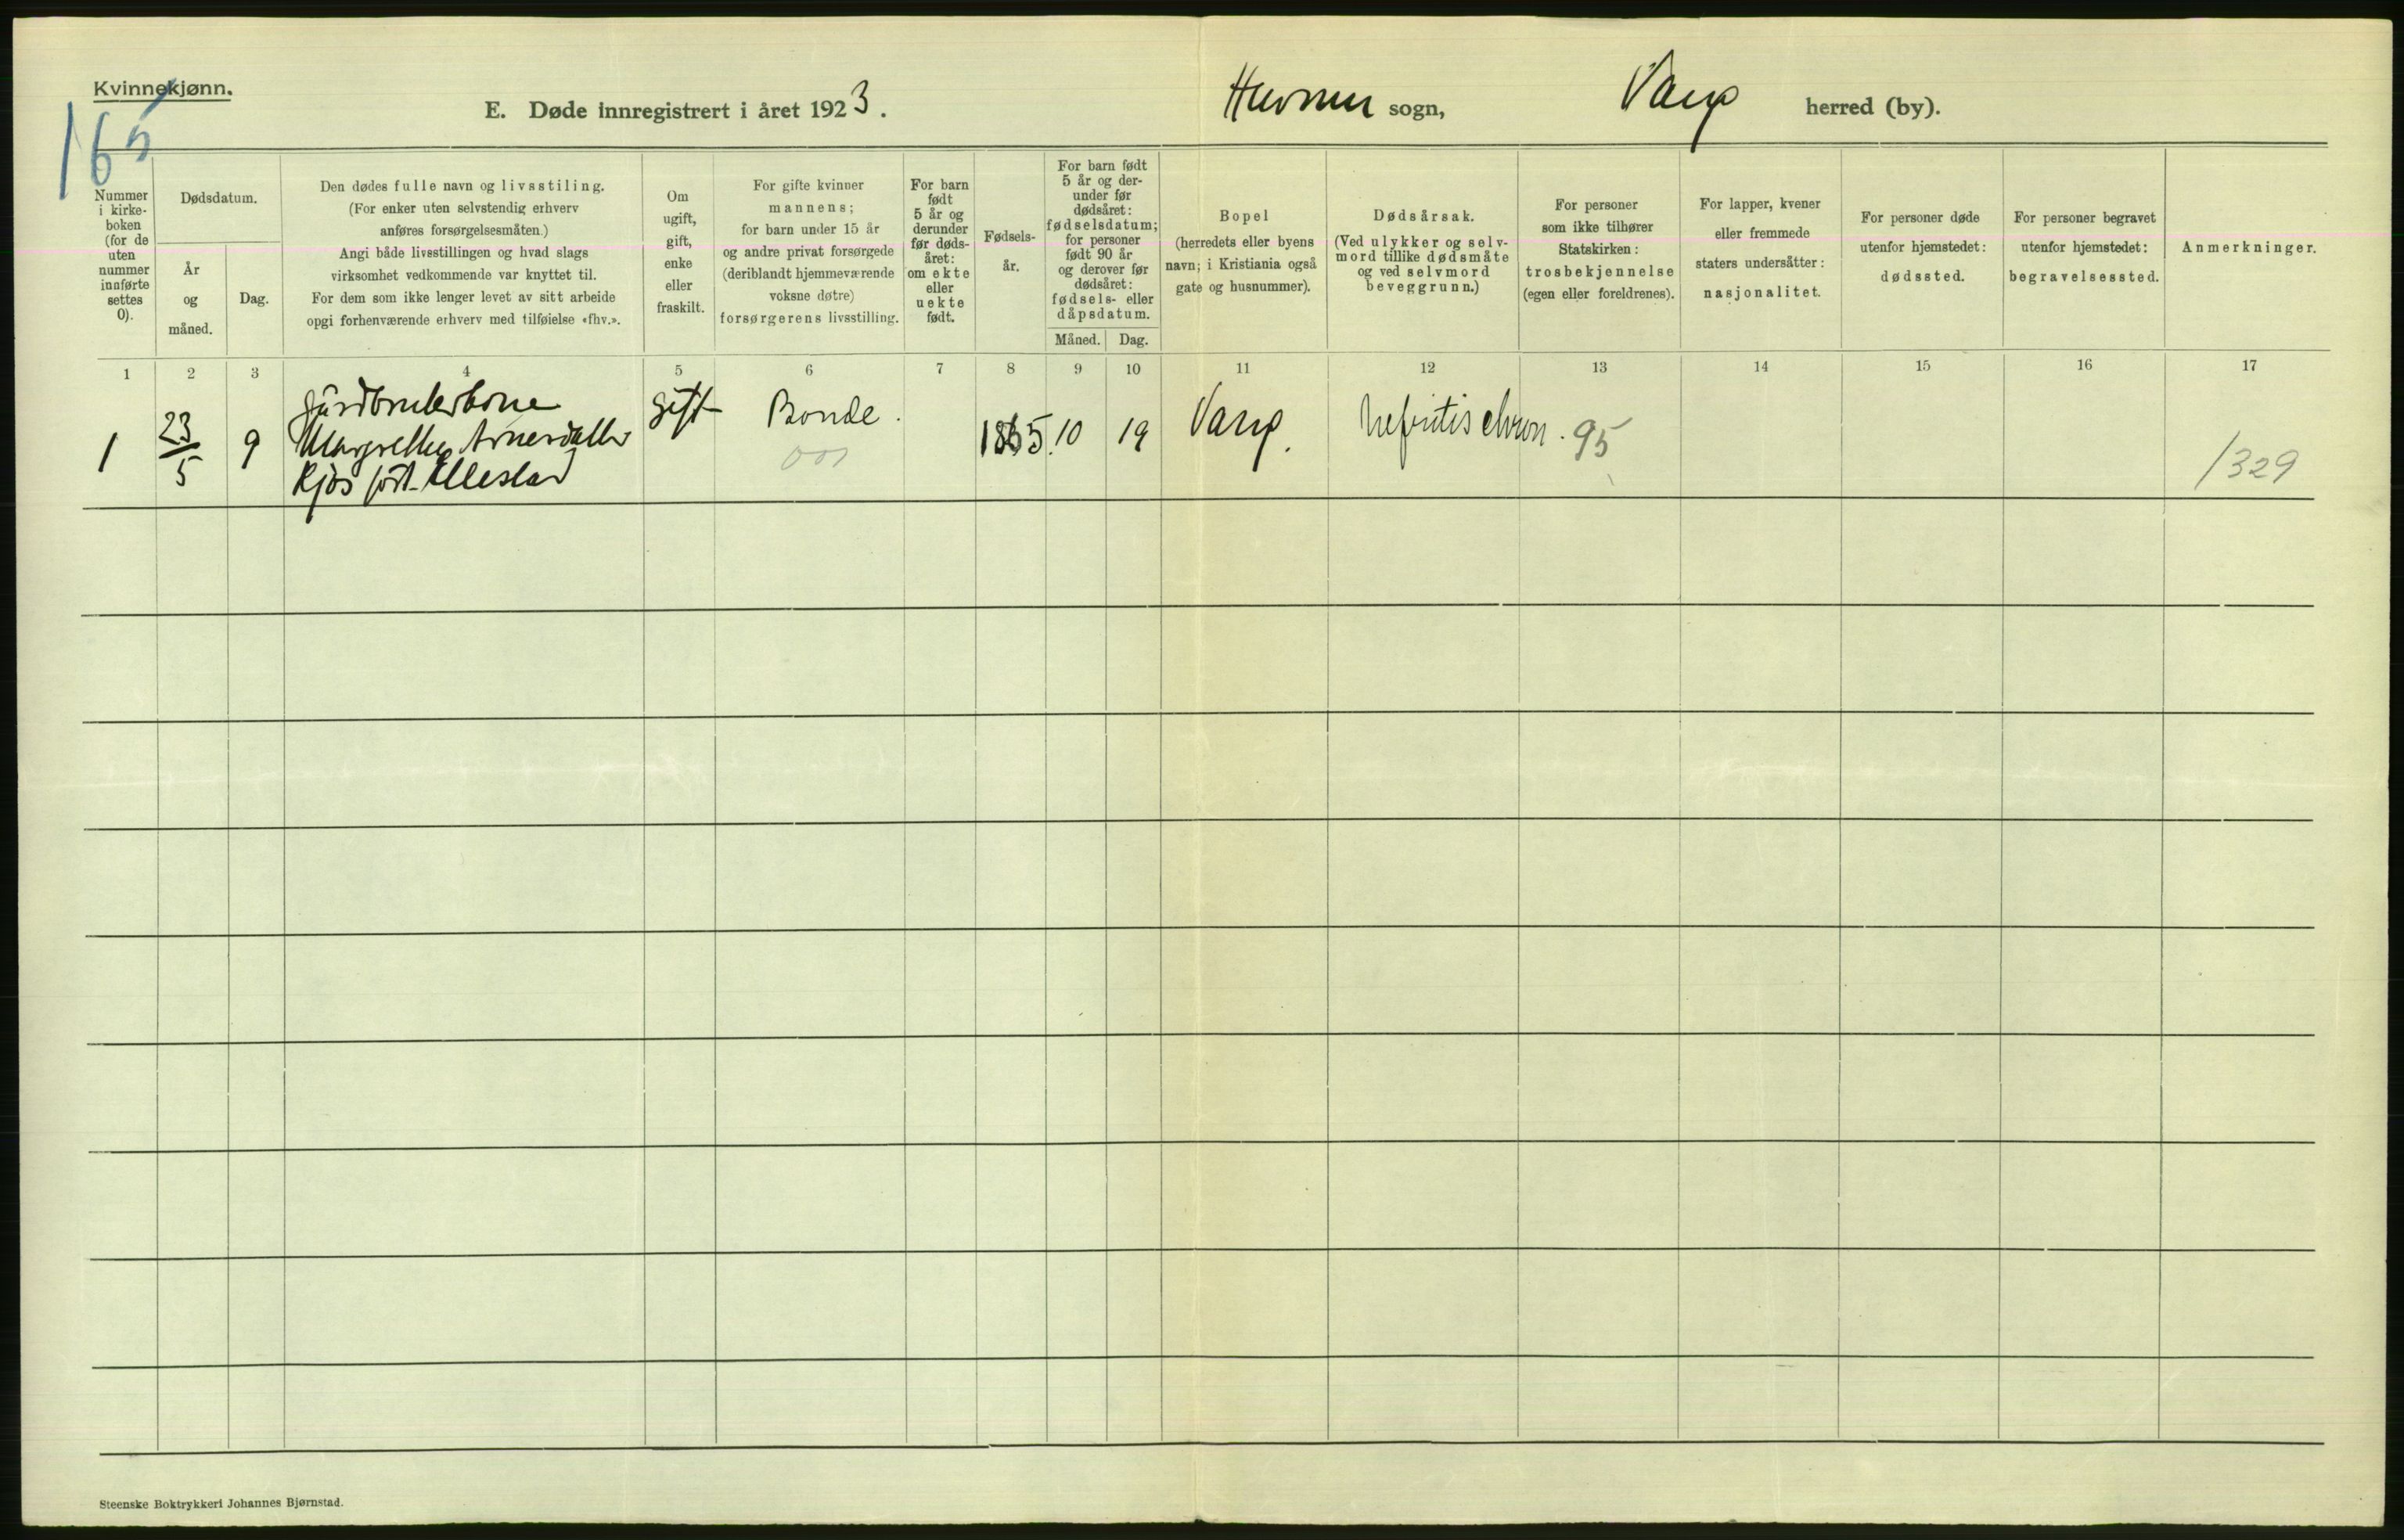 Kvinnekjønn.
165
E. Døde innregistrert i året 1923.
Hurum sogn, Vang herred (by).
Nummer i kirke- boken (for de uten nummer innførte settes 0).
Dødsdatum.
År og måned.
Dag.
Den dødes fulle navn og livsstiling.
(For enker uten selvstendig erhverv
anføres forsørgelsesmåten.)
Angi både livsstillingen og hvad slags
virksomhet vedkommende var knyttet til.
For dem som ikke lenger levet av sitt arbeide
opgi forhenværende erhverv med tilføielse «fhv.».
Om
ugift,
gift,
enke
eller
fraskilt.
For gifte kvinner
mannens;
for barn under 15 år
og andre privat forsørgede
(deriblandt hjemmeværende
voksne døtre)
forsørgerens livsstilling.
For barn
født
5 år og
derunder
før døds-
året:
om ekte
eller
uekte
født.
Fødsels-
år.
For barn født
5 år og der-
under før
dødsåret:
fødselsdatum;
for personer
født 90 år
og derover før
dødsåret:
fødsels- eller
dåpsdatum.
Måned. Dag.
Bopel
(herredets eller byens
navn; i Kristiania også
gate og husnummer).
Dødsårsak.
(Ved ulykker og selv-
mord tillike dødsmåte
og ved selvmord
beveggrunn.)
For personer
som ikke tilhører
Statskirken:
trosbekjennelse
(egen eller foreldrenes).
For lapper, kvener
eller fremmede
staters undersåtter:
nasjonalitet.
For personer døde
utenfor hjemstedet:
dødssted.
For personer begravet
utenfor hjemstedet:
begravelsessted.
Anmerkninger.
1 2 3 4 5 6 7 8 9 10 11 12 13 14 15 16 17
1 23/5 9
Gårdbrukerkone
Margrethe Arnesdatter
Kjøs født Ellestad
gift Bonde.
1865. 10 19 Vang. Nefritis chron. 95
1329
Steenske Boktrykkeri Johannes Bjørnstad.